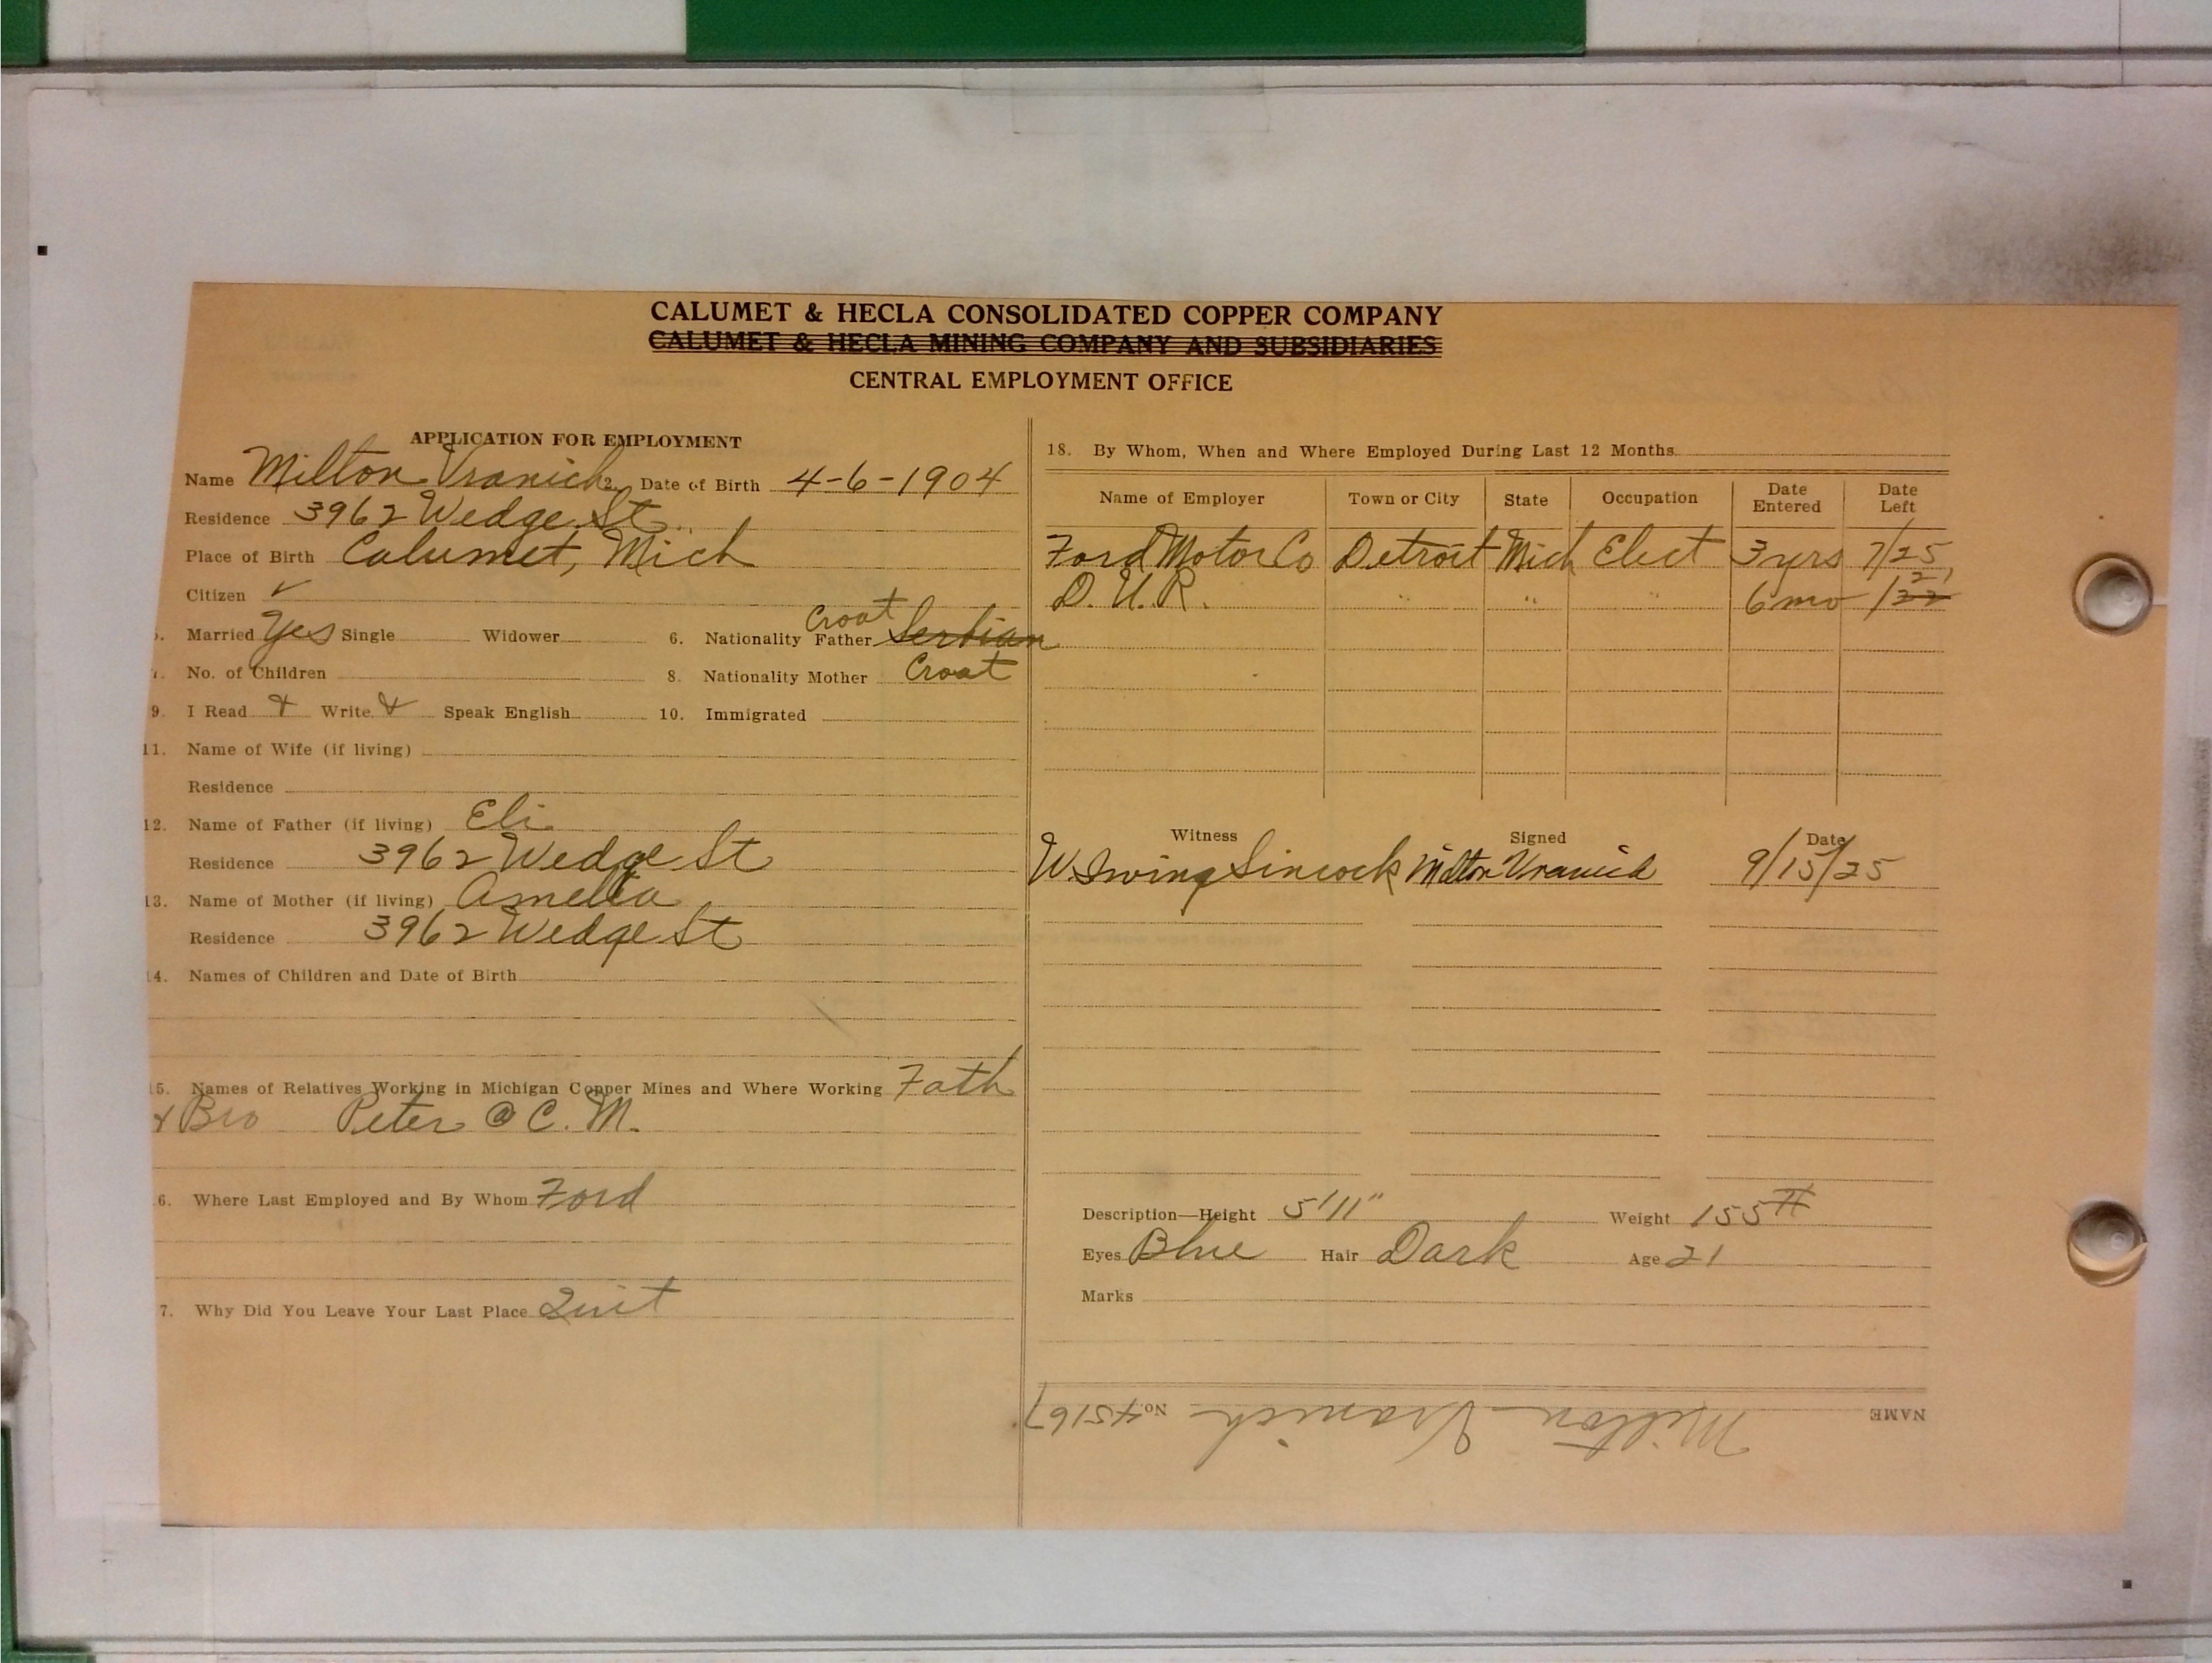 CALUMET & HECLA CONSOLIDATED COPPER COMPANY
CALUMET & HECLA MINING COMPANY AND SUBSIDIARIES
CENTRAL EMPLOYMENT OFFICE
APPLICATION FOR EMPLOYMENT
Name Milton Vranich 2. Date of Birth 4-6-1904
Residence 3962 Wedge St.
Place of Birth Calumet, Mich
Citizen ✓
5. Married Yes Single Widower 6. Nationality Father Croat Serbian
7. No. of Children 8. Nationality Mother Croat
9. I Read & Write & Speak English 10. Immigrated
11. Name of Wife (if living)
Residence
12. Name of Father (if living) Eli
Residence 3962 Wedge St
13. Name of Mother (if living) Amelia
Residence 3962 Wedge St
14. Names of Children and Date of Birth
15. Names of Relatives Working in Michigan Copper Mines and Where Working Fath
& Bro Peter @ C. M.
6. Where Last Employed and By Whom Ford
7. Why Did You Leave Your Last Place Quit
18. By Whom, When and Where Employed During Last 12 Months
Name of Employer Town or City State Occupation Date Entered Date Left
Ford Motor Co Detroit Mich Elect 3 yrs 7/25
D. U. R. " " " 6 mo 1/22 21
Witness Signed Date
W. Irving Sincock Milton Vranich 9/15/25
Description—Height 5'11" Weight 155 #
Eyes Blue Hair Dark Age 21
Marks
NAME Milton Vranich No. 45167